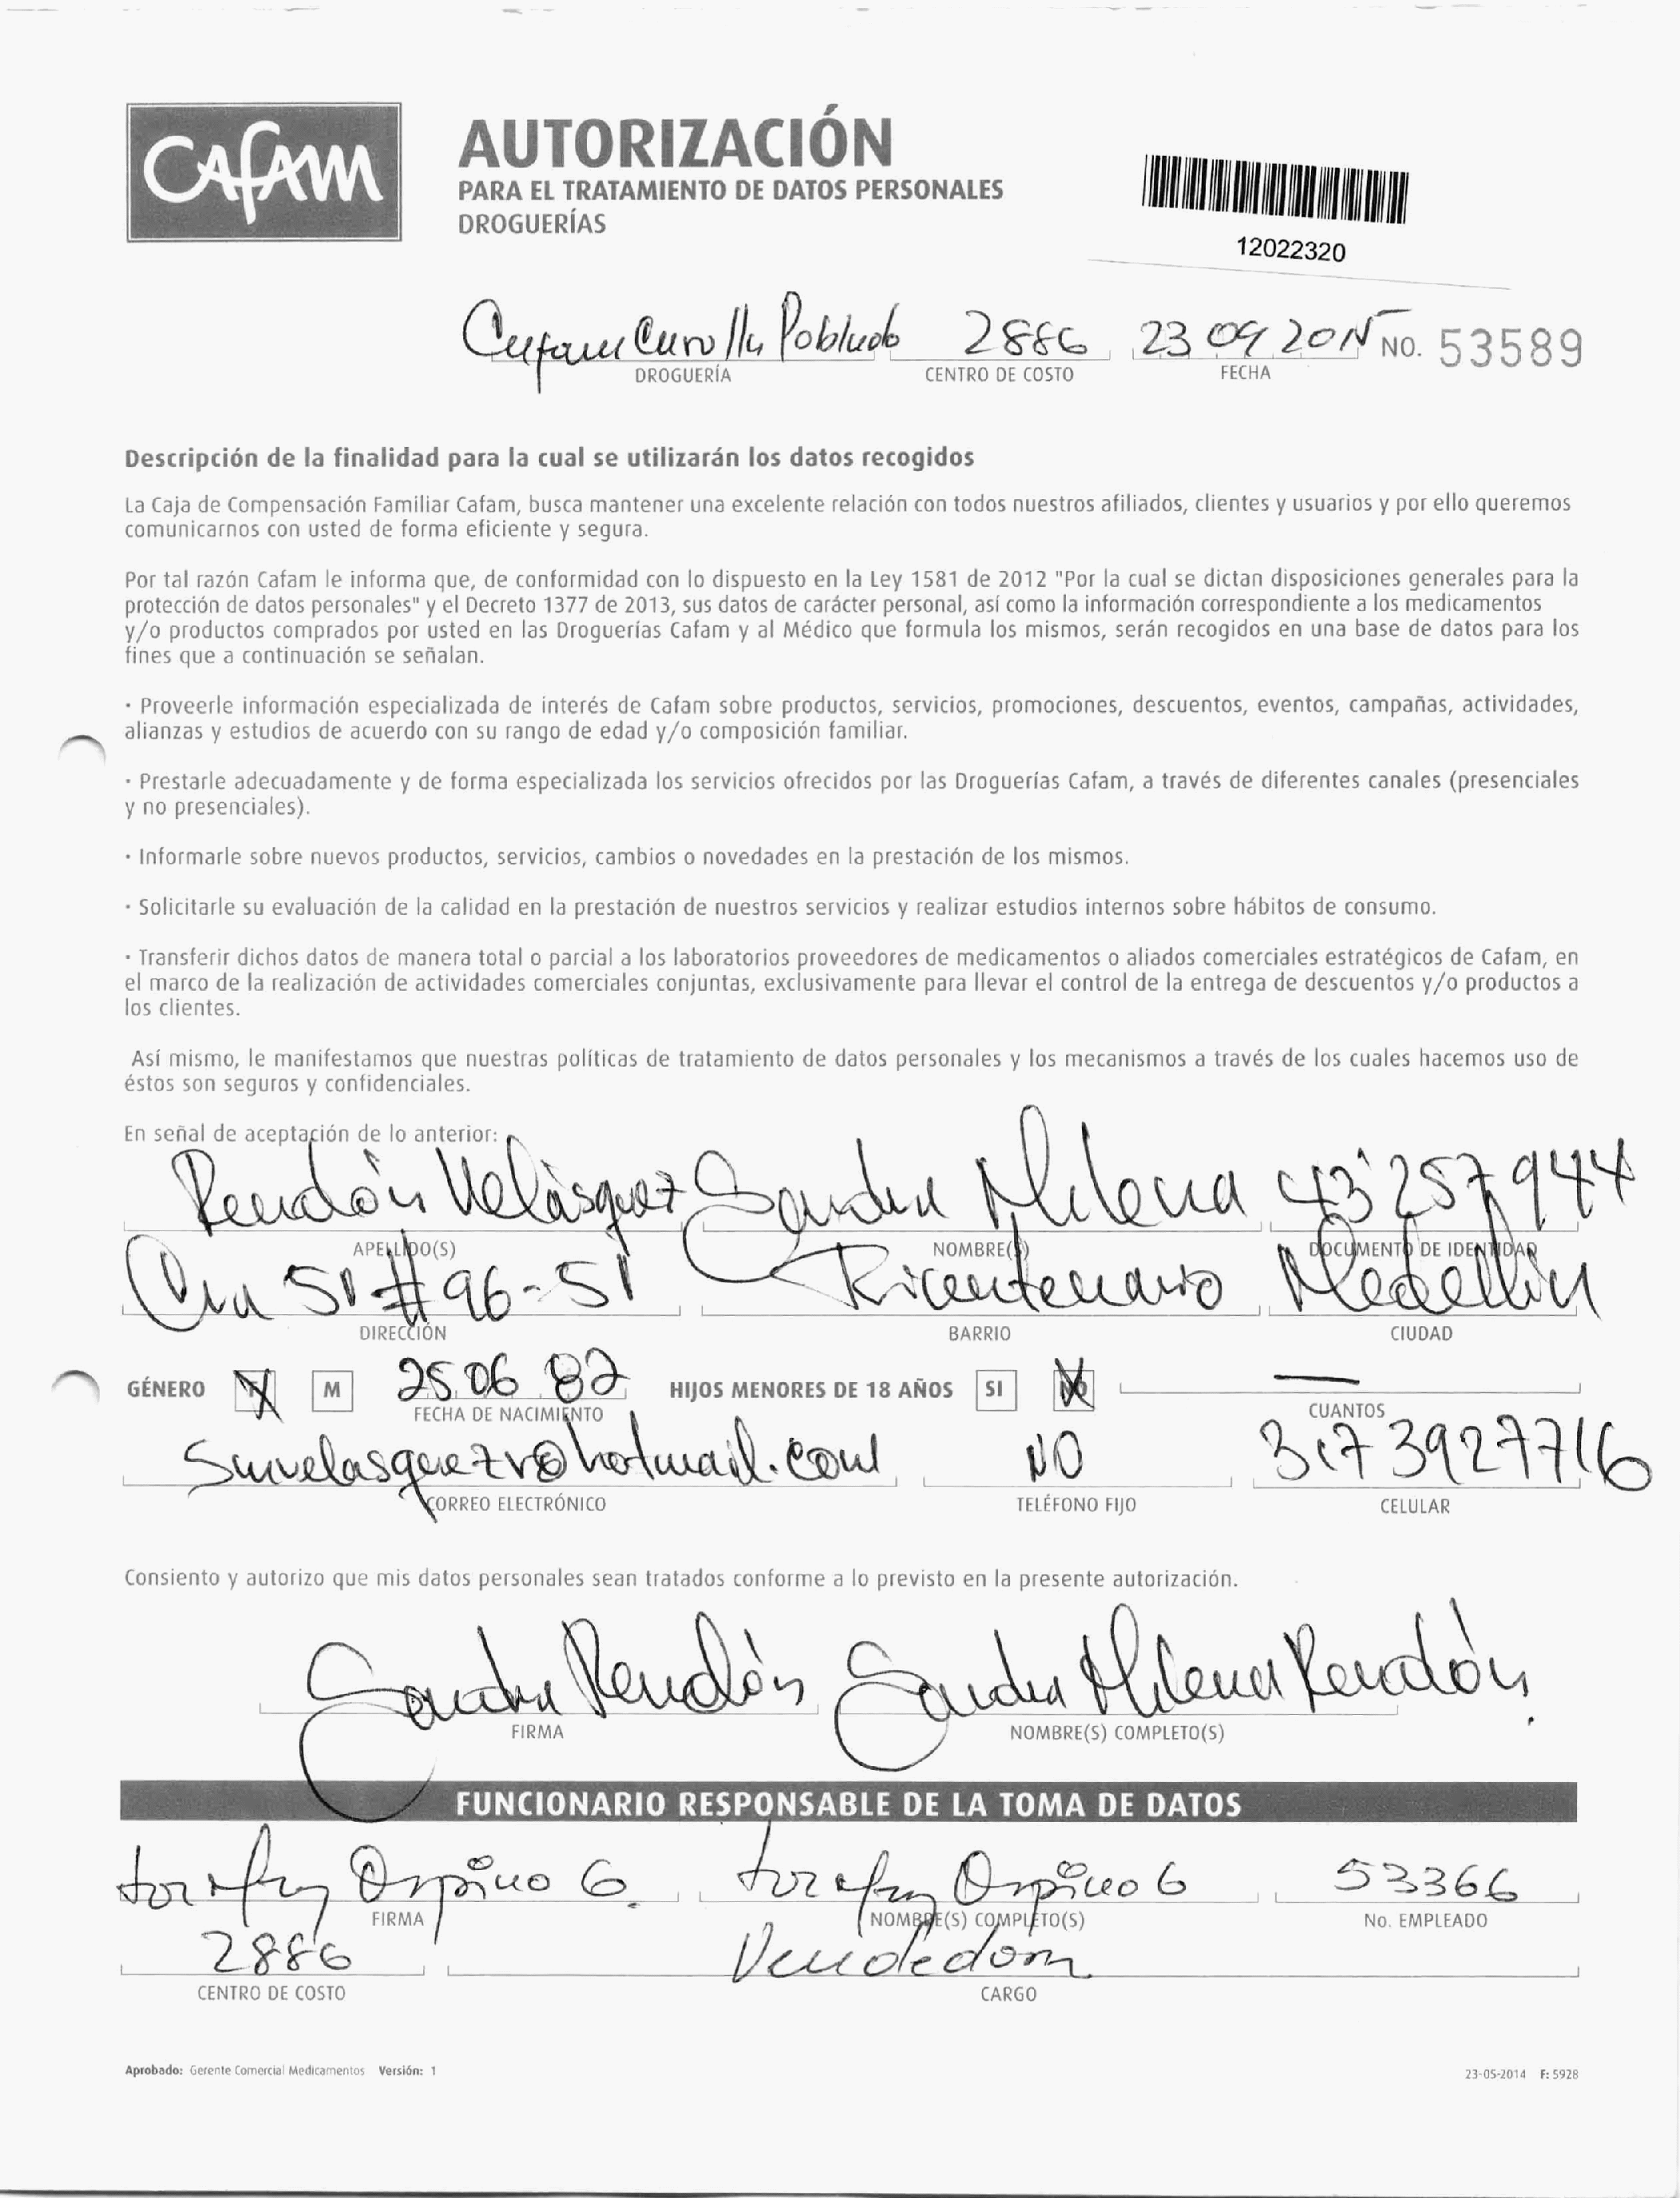 CAFAM
AUTORIZACIÓN
PARA EL TRATAMIENTO DE DATOS PERSONALES
DROGUERÍAS
12022320
Cafam Carulla Poblado 2886 23 09 2015 NO. 53589
DROGUERÍA CENTRO DE COSTO FECHA
Descripción de la finalidad para la cual se utilizarán los datos recogidos
La Caja de Compensación Familiar Cafam, busca mantener una excelente relación con todos nuestros afiliados, clientes y usuarios y por ello queremos
comunicarnos con usted de forma eficiente y segura.
Por tal razón Cafam le informa que, de conformidad con lo dispuesto en la Ley 1581 de 2012 "Por la cual se dictan disposiciones generales para la
protección de datos personales" y el Decreto 1377 de 2013, sus datos de carácter personal, así como la información correspondiente a los medicamentos
y/o productos comprados por usted en las Droguerías Cafam y al Médico que formula los mismos, serán recogidos en una base de datos para los
fines que a continuación se señalan.
· Proveerle información especializada de interés de Cafam sobre productos, servicios, promociones, descuentos, eventos, campañas, actividades,
alianzas y estudios de acuerdo con su rango de edad y/o composición familiar.
· Prestarle adecuadamente y de forma especializada los servicios ofrecidos por las Droguerías Cafam, a través de diferentes canales (presenciales
y no presenciales).
· Informarle sobre nuevos productos, servicios, cambios o novedades en la prestación de los mismos.
· Solicitarle su evaluación de la calidad en la prestación de nuestros servicios y realizar estudios internos sobre hábitos de consumo.
· Transferir dichos datos de manera total o parcial a los laboratorios proveedores de medicamentos o aliados comerciales estratégicos de Cafam, en
el marco de la realización de actividades comerciales conjuntas, exclusivamente para llevar el control de la entrega de descuentos y/o productos a
los clientes.
Así mismo, le manifestamos que nuestras políticas de tratamiento de datos personales y los mecanismos a través de los cuales hacemos uso de
éstos son seguros y confidenciales.
En señal de aceptación de lo anterior:
Rendón Velásquez Sandra Milena 43'257944
APELLIDO(S) NOMBRE(S) DOCUMENTO DE IDENTIDAD
Cra 51 # 96-51 Bicentenario Medellín
DIRECCIÓN BARRIO CIUDAD
GÉNERO M 25 06 82 HIJOS MENORES DE 18 AÑOS SI NO —
FECHA DE NACIMIENTO CUANTOS
smvelasquezr@hotmail.com NO 3173927716
CORREO ELECTRÓNICO TELÉFONO FIJO CELULAR
Consiento y autorizo que mis datos personales sean tratados conforme a lo previsto en la presente autorización.
Sandra Rendón Sandra Milena Rendón.
FIRMA NOMBRE(S) COMPLETO(S)
FUNCIONARIO RESPONSABLE DE LA TOMA DE DATOS
Ospino G. Ospino G 53366
FIRMA NOMBRE(S) COMPLETO(S) No. EMPLEADO
2886 Vendedora
CENTRO DE COSTO CARGO
Aprobado: Gerente Comercial Medicamentos Versión: 1
23-05-2014 F: 5928